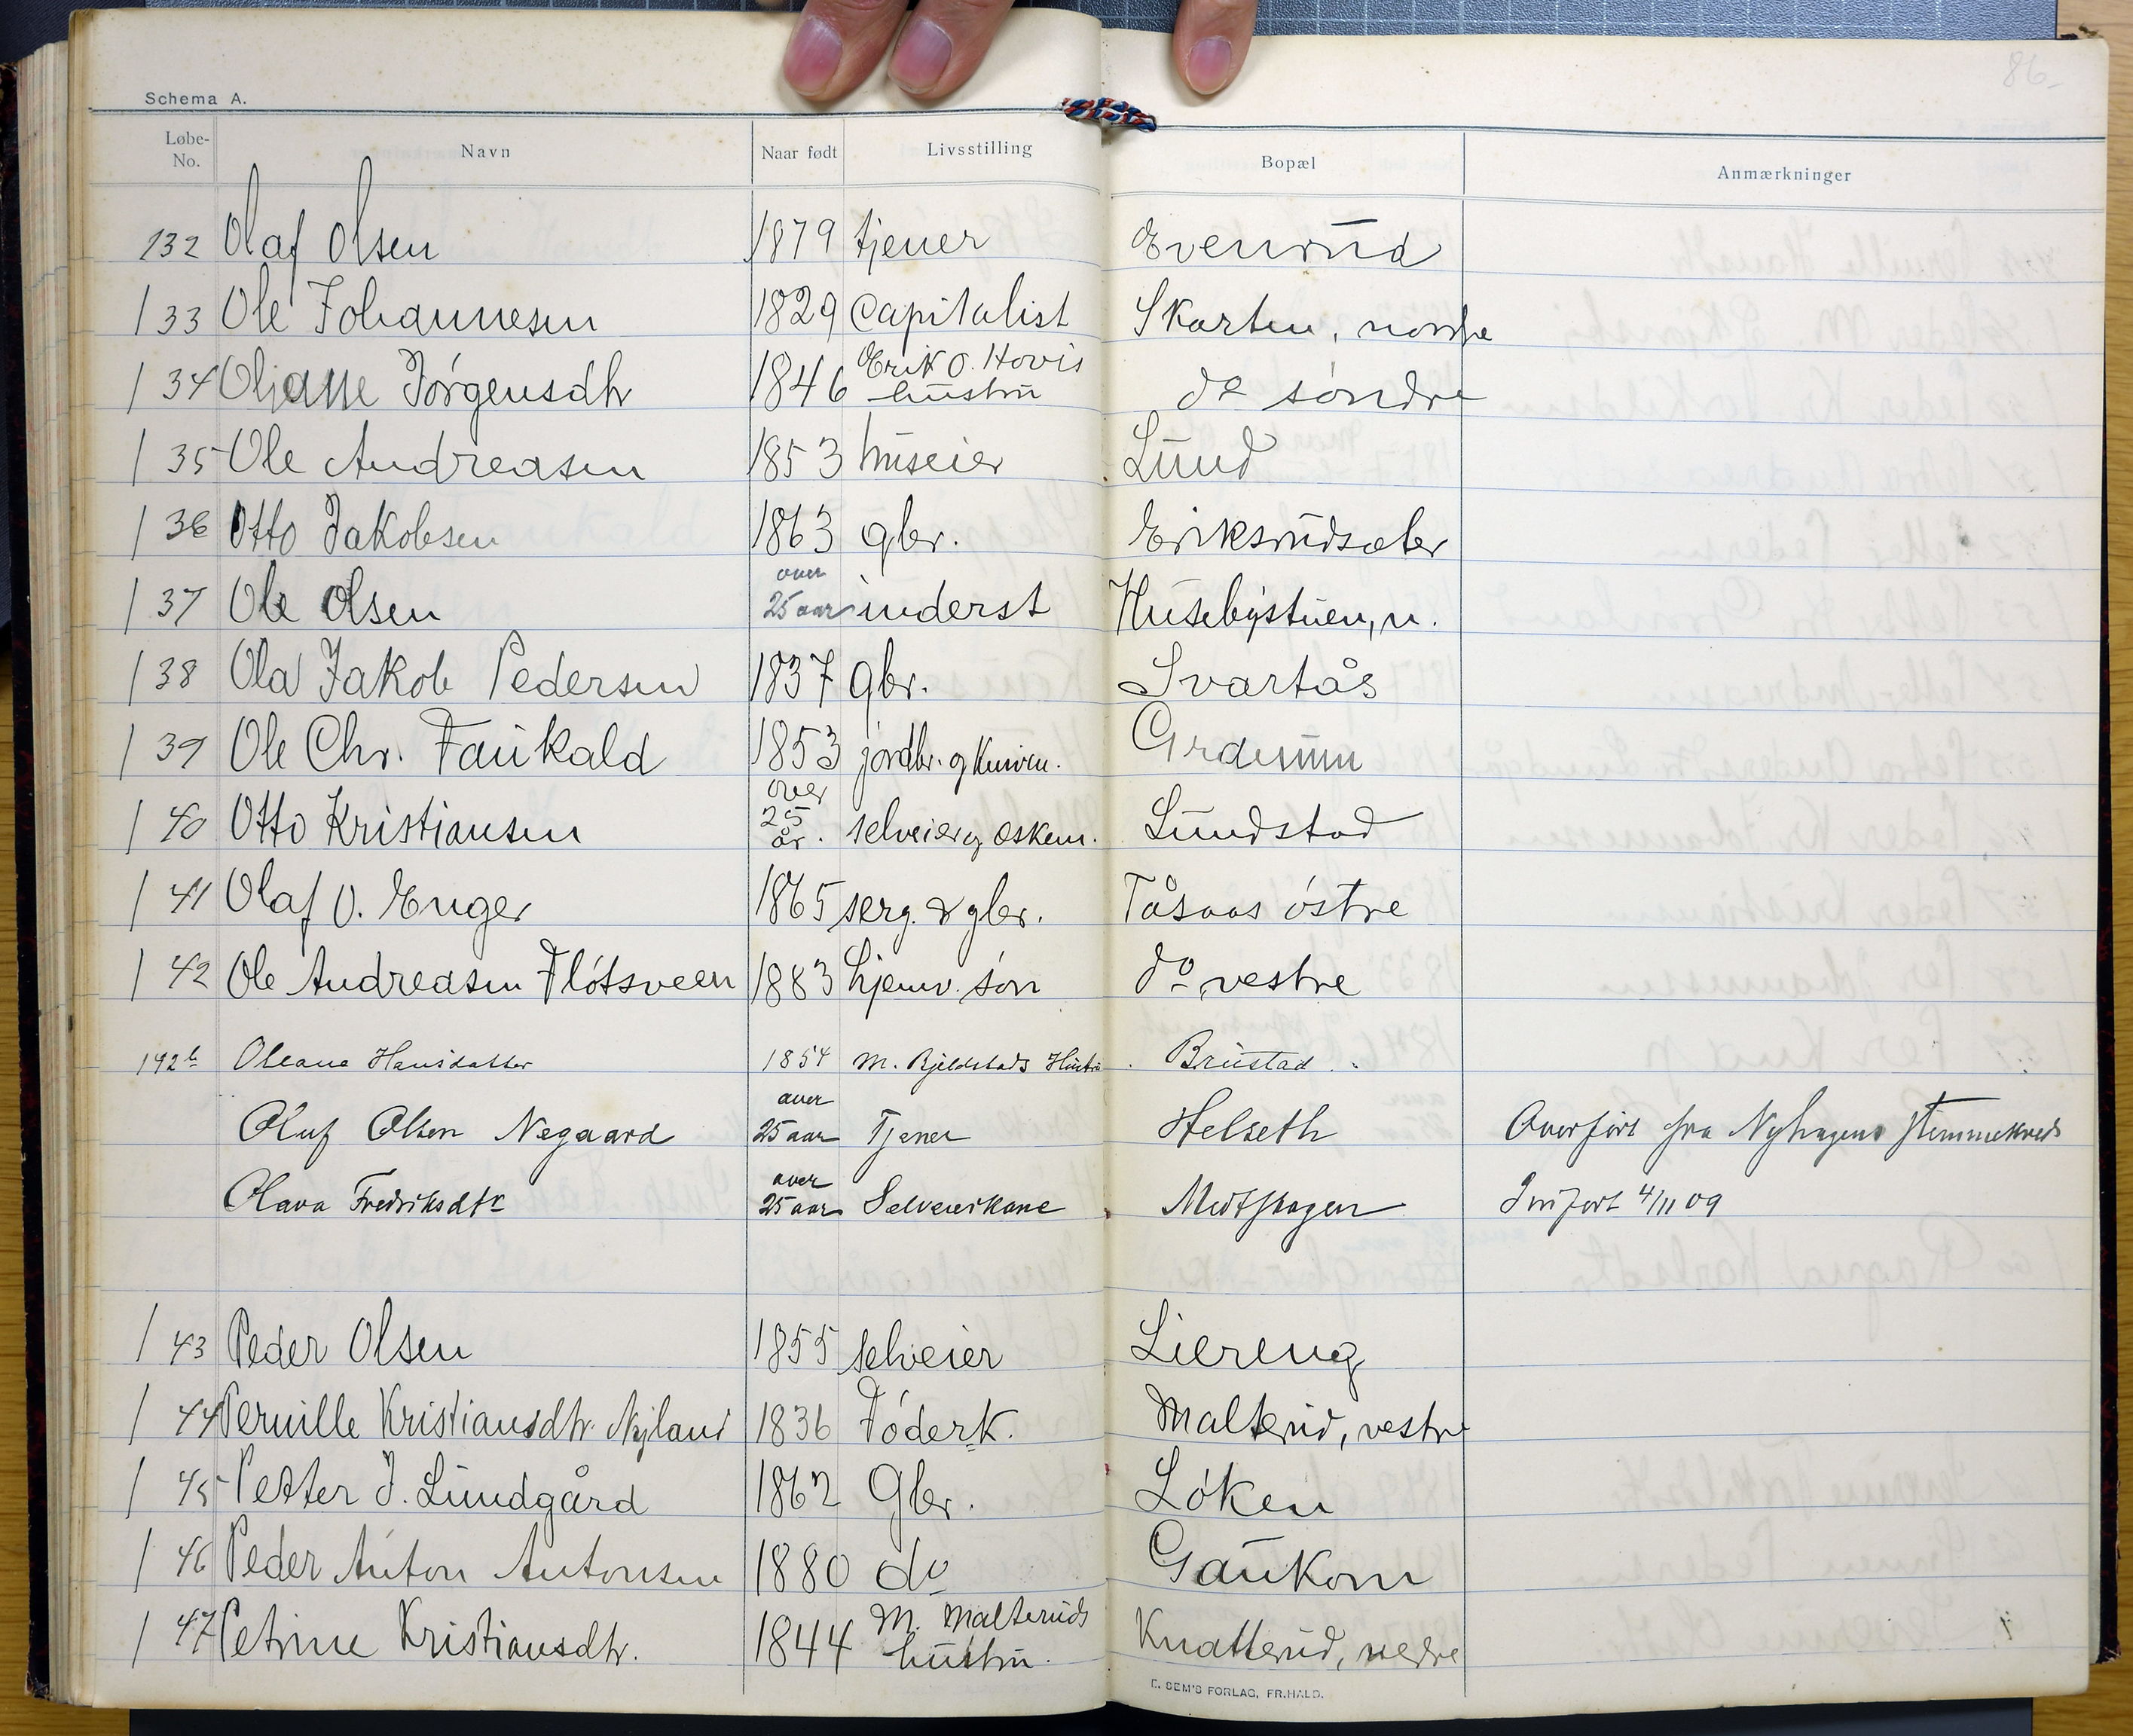 86
Schema A.
Løbe-No. Navn Naar født Livsstilling Bopæl Anmærkninger
132 Olaf Olsen 1879 tjener Evenrud
133 Ole Johannesen 1829 Capitalist Skarten, nordre
134 Oljane Jörgensdtr 1846 Erik O. Hovis hustru do söndre
135 Ole Andreasen 1853 huseier Lund
136 Otto Jakobsen 1863 gbr. Eriksrudsæter
137 Ole Olsen over 25 aar inderst Husebystuen, n.
138 Ola Jakob Pedersen 1837 gbr. Svartås
139 Ole Chr. Faukald 1853 jordbr. og Grdemm
140 Otto Kristiansen over 25 år. selveier og Lundstad
141 Olaf O. Enger 1865 serg. & gbr. Tåsaas östre
142 Ole Andreasen Flótsveen 1883 hjemv. sön do vestre
142b Oleana Hansdatter 1854 M. Bjeldstads Hustru Brustad
Oluf Olsen Negaard over 25 aar Tjener Helseth Overført fra Nyhagens Stemmekreds
Olava Fredriksdtr over 25 aar Selveierkone Midtskogen Indført 4/11 09
143 Peder Olsen 1855 selveier Liereng
144 Pernille Kristiansdtr. Nyland 1836 Föderk. Malterud, vestre
145 Petter J. Lundgård 1862 Gbr. Löken
146 Peder Anton Antonsen 1880 do Gaukom
147 Petrine Kristiansdtr. 1844 M. Malteruds hustru. Knatterud, nedre
E. SEM'S FORLAG, FR.HALD.